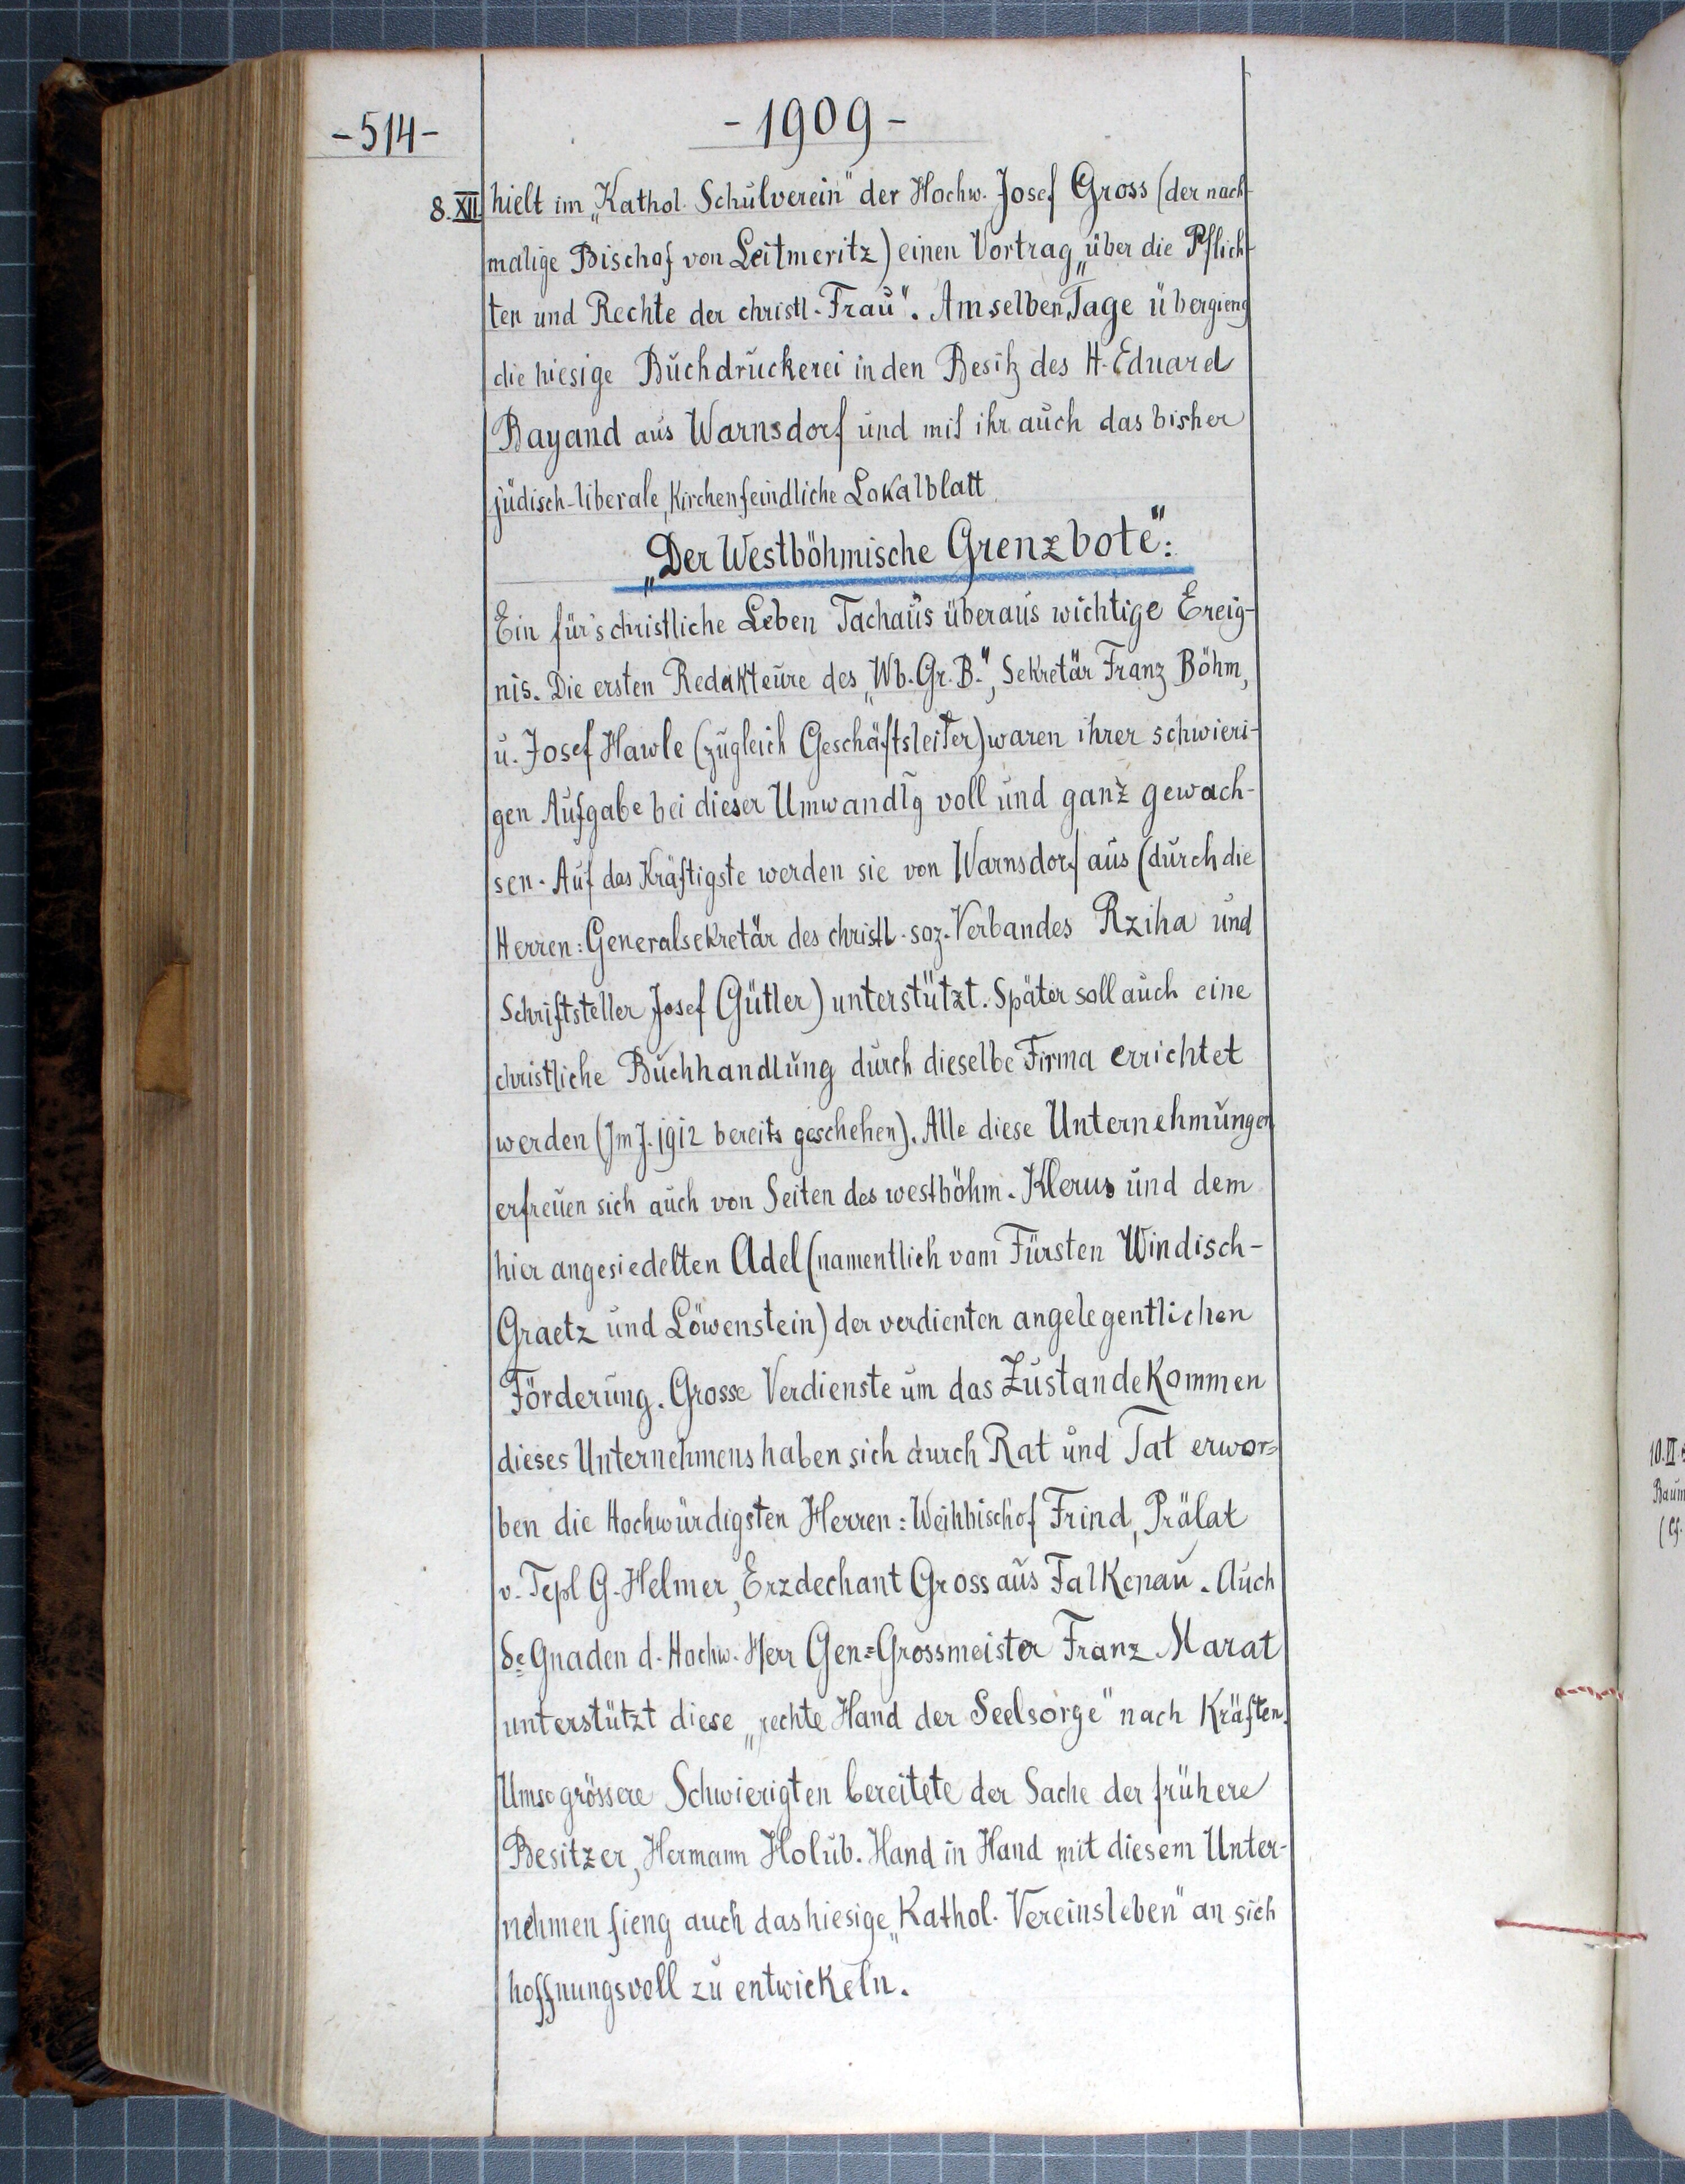 -514-
- 1909 -
8. XII. hielt im „Kathol. Schulverein" der Hochw. Josef Gross (der nach-
malige Bischof von Leitmeritz) einen Vortrag „über die Pflich-
ten und Rechte der christl. Frau". Am selben Tage übergieng
die hiesige Buchdruckerei in den Besitz des H. Eduard
Bayand aus Warnsdorf und mit ihr auch das bisher
jüdisch-liberale, Kirchenfeindliche Lokalblatt
„Der Westböhmische Grenzbote":
Ein für's christliche Leben Tachau's überaus wichtige Ereig-
nis. Die ersten Redakteure des „Wb. Gr. B.", Sekretär Franz Böhm,
u. Josef Hawle (zugleich Geschäftsleiter) waren ihrer schwieri-
gen Aufgabe bei dieser Umwandlg voll und ganz gewach-
sen. Auf das Kräftigste werden sie von Warnsdorf aus (durch die
Herren: Generalsekretär des christl.-soz. Verbandes Rziha und
Schriftsteller Josef Gütler) unterstützt. Später soll auch eine
christliche Buchhandlung durch dieselbe Firma errichtet
werden (Im J. 1912 bereits geschehen). Alle diese Unternehmungen
erfreuen sich auch von Seiten des westböhm. Klerus und dem
hier angesiedelten Adel (namentlich vom Fürsten Windisch-
Graetz und Löwenstein) der verdienten angelegentlichen
Förderung. Grosse Verdienste um das Zustandekommen
dieses Unternehmens haben sich durch Rat und Tat erwor=
ben die Hochwürdigsten Herren: Weihbischof Frind, Prälat
v. Tepl G. Helmer, Erzdechant Gross aus Falkenau. Auch
Se Gnaden d. Hochw. Herr Gen=Grossmeister Franz Marat
unterstützt diese „rechte Hand der Seelsorge" nach Kräften.
Umso grössere Schwierigten bereitete der Sache der frühere
Besitzer, Hermann Holub. Hand in Hand mit diesem Unter-
nehmen fieng auch das hiesige „Kathol. Vereinsleben" an sich
hoffnungsvoll zu entwickeln.
10. II.
Baum